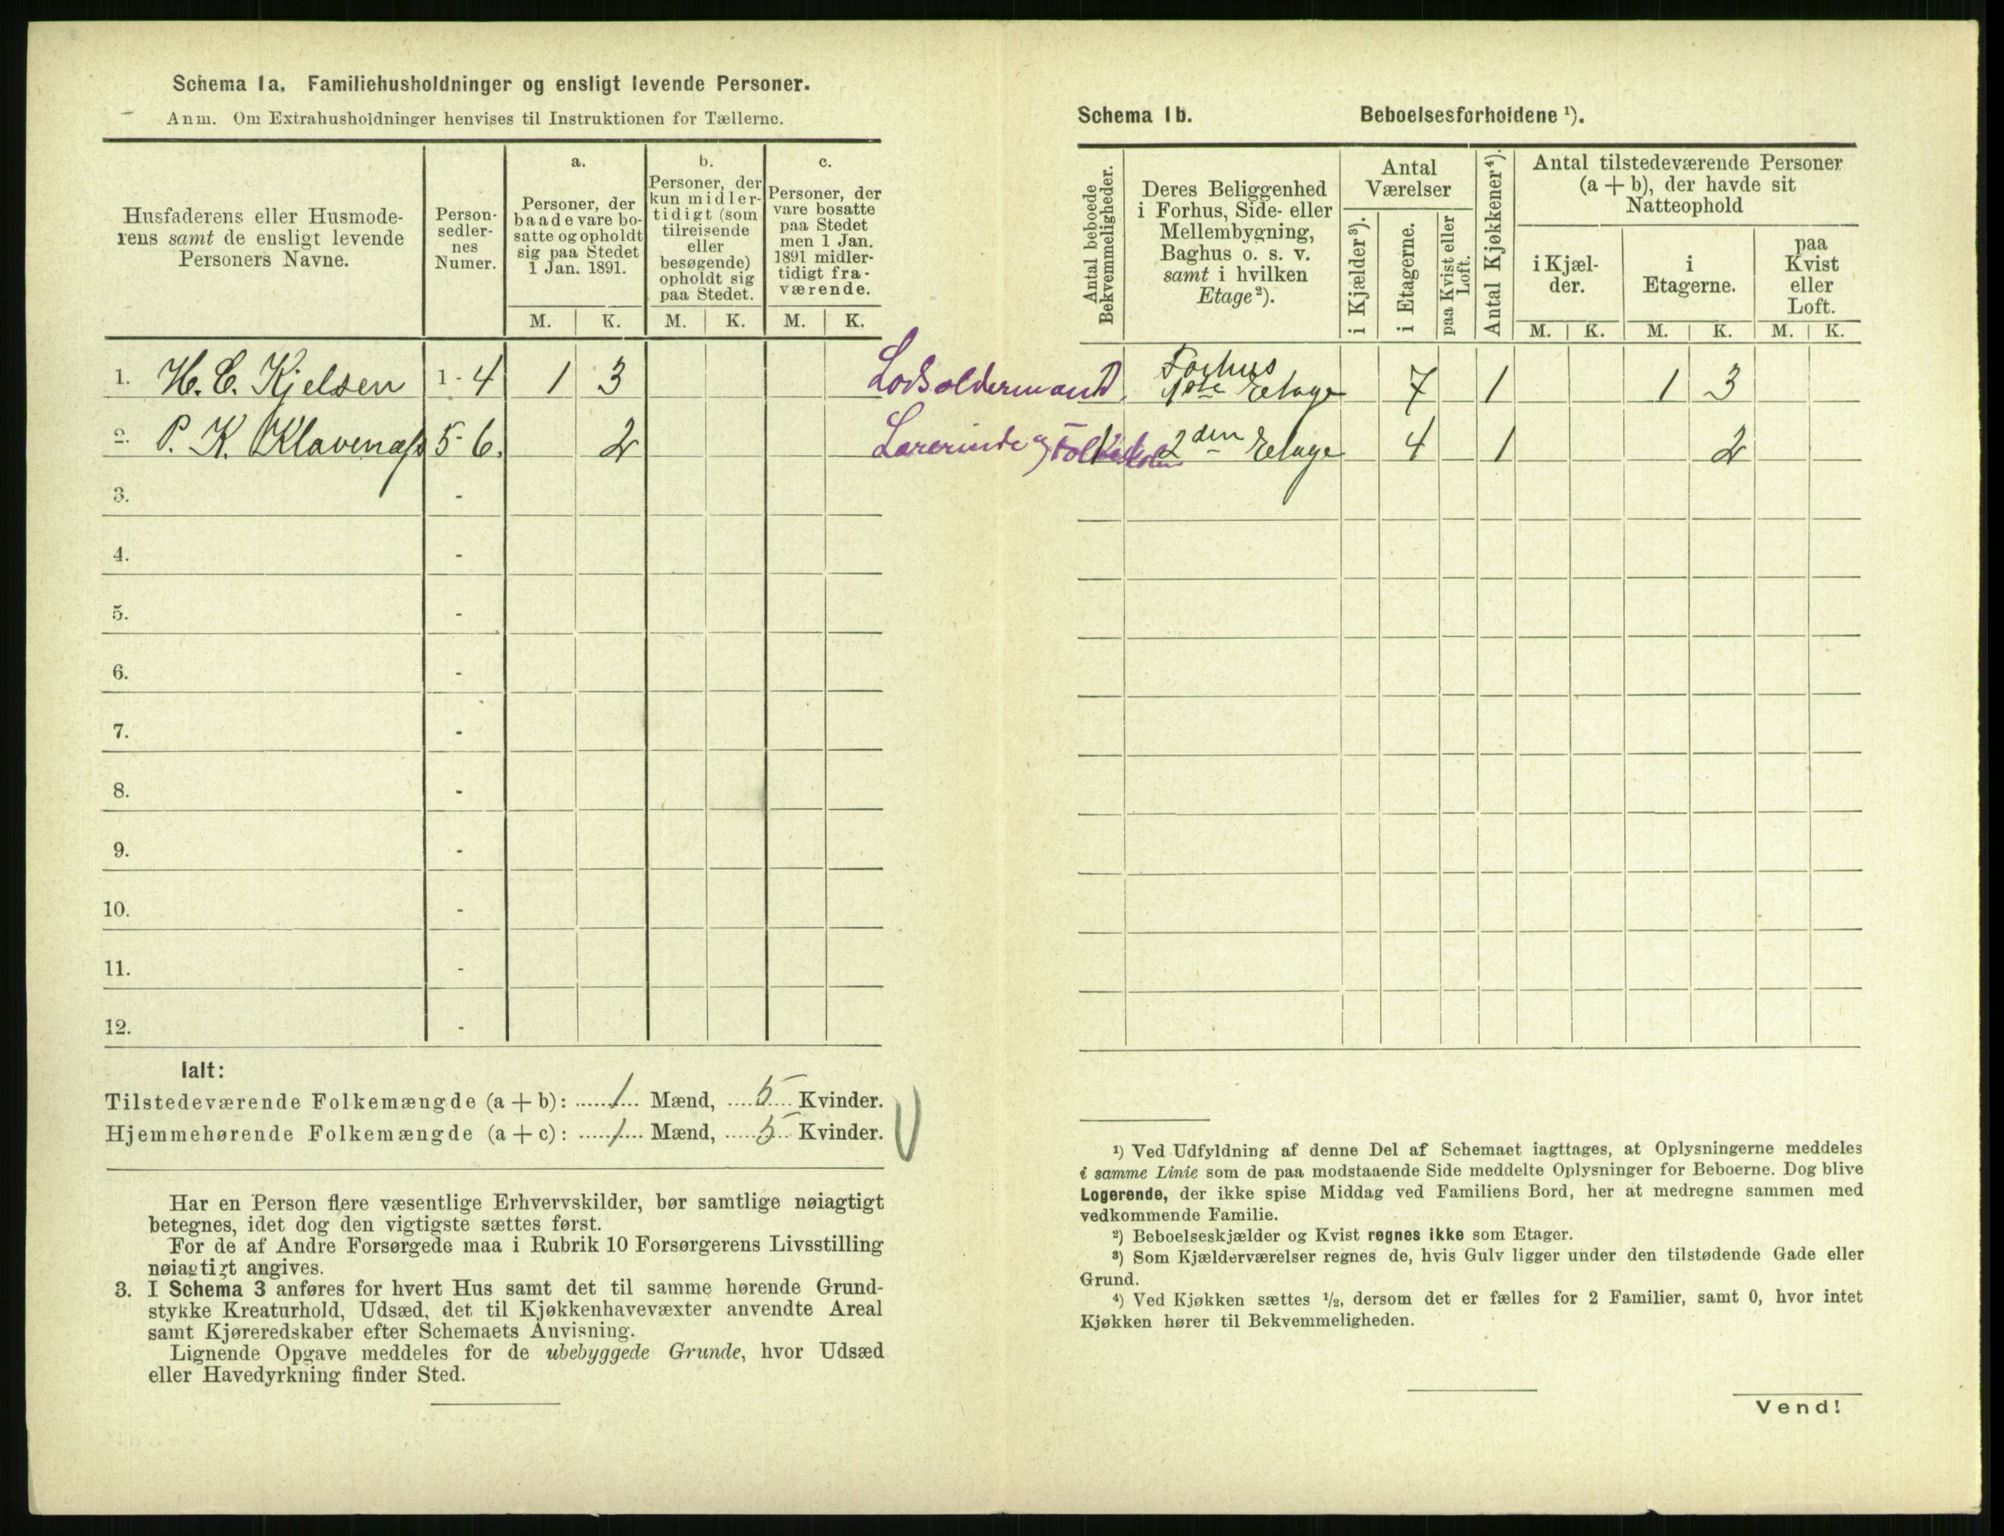 Schema 1a. Familiehusholdninger og ensligt levende Personer.
Anm. Om Extrahusholdninger henvises til Instruktionen for Tællerne.
Husfaderens eller Husmode-
rens samt de ensligt levende
Personers Navne.
Person-
sedler-
nes
Numer.
a.
Personer, der
baade vare bo-
satte og opholdt
sig paa Stedet
1 Jan. 1891.
b.
Personer, der
kun midler-
tidigt (som
tilreisende
eller
besøgende)
opholdt sig
paa Stedet.
c.
Personer, der
vare bosatte
paa Stedet
men 1 Jan.
1891 midler-
tidigt fra-
værende.
M. K. M. K. M. K.
1. H. C. Kjelsen 1 - 4 1 3
2. P. K. Klavenæss 5 - 6. 2
3. -
4. -
5. -
6. -
7. -
8. -
9. -
10. -
11. -
12. -
Ialt:
Tilstedeværende Folkemængde (a + b): ......1... Mænd, ....5.... Kvinder.
Hjemmehørende Folkemængde (a + c): ......1.... Mænd, .....5... Kvinder.
Har en Person flere væsentlige Erhvervskilder, bør samtlige nøiagtigt
betegnes, idet dog den vigtigste sættes først.
For de af Andre Forsørgede maa i Rubrik 10 Forsørgerens Livsstilling
nøiagtigt angives.
3. I Schema 3 anføres for hvert Hus samt det til samme hørende Grund-
stykke Kreaturhold, Udsæd, det til Kjøkkenhavevæxter anvendte Areal
samt Kjøreredskaber efter Schemaets Anvisning.
Lignende Opgave meddeles for de ubebyggede Grunde, hvor Udsæd
eller Havedyrkning finder Sted.
Schema 1b. Beboelsesforholdene ¹).
Antal beboede
Bekvemmeligheder.
Deres Beliggenhed
i Forhus, Side- eller
Mellembygning,
Baghus o. s. v.
samt i hvilken
Etage ²).
Antal
Værelser
i Kjælder ³).
i Etagerne.
paa Kvist eller
Loft.
Antal Kjøkkener ⁴).
Antal tilstedeværende Personer
(a + b), der havde sit
Natteophold
i Kjæl-
der.
i
Etagerne.
paa
Kvist
eller
Loft.
M. K. M. K. M. K.
Lodsoldermand 1 Forhus
1ste Etage 7 1 1 3
Lærerinde og Folkeskolen 1 2den Etage 4 1 2
¹) Ved Udfyldning af denne Del af Schemaet iagttages, at Oplysningerne meddeles
i samme Linie som de paa modstaaende Side meddelte Oplysninger for Beboerne. Dog blive
Logerende, der ikke spise Middag ved Familiens Bord, her at medregne sammen med
vedkommende Familie.
²) Beboelseskjælder og Kvist regnes ikke som Etager.
³) Som Kjælderværelser regnes de, hvis Gulv ligger under den tilstødende Gade eller
Grund.
⁴) Ved Kjøkken sættes ½, dersom det er fælles for 2 Familier, samt 0, hvor intet
Kjøkken hører til Bekvemmeligheden.
Vend!